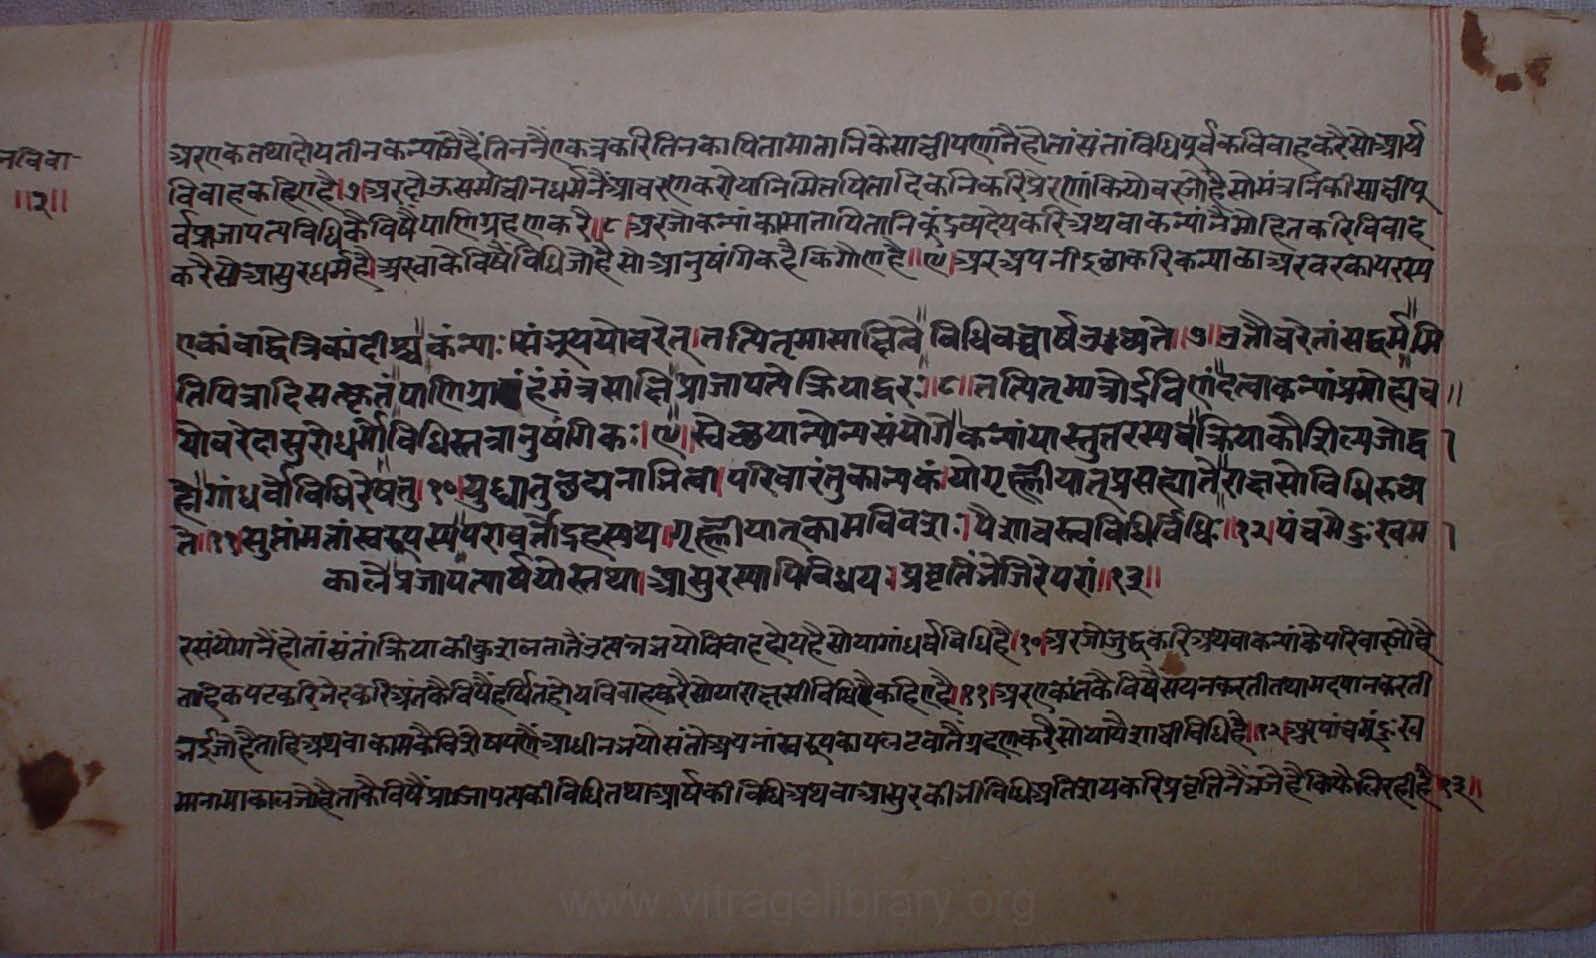 नविवा
॥२॥
अरएकतथादोयतीनकन्याजेहैंतिननैंएकत्रकरितिनकापितामातानिकेसाक्षीपणांनैंहोतांसंतांविधिपूर्वकविवाहकरैसोआर्ष
विवाहकहिएहै।७।अरदोऊसमीचीनधर्मनैंआचरणकरोयानिमित्तपितादिकनिकरिप्रेरणांकियोवरजोहैसोमंत्रनिकीसाक्षीपू
र्वप्रजापत्यविधिकैविषैपाणिग्रहणकरै॥८।अरजोकन्यांकामातापितानिकूंद्रव्यदेयकरिअथवाकन्यांनैमोहितकरिविवाह
करैसोआसुरधर्महै।अरवाकेविषैंविधिजोहैसोआनुषंगिकहैकिगौणहै॥९।अरअपनीइछाकरिकन्याकाअरवरकापरस्प
एकांवाद्वेत्रिकांदीक्ष्यकंन्याः।संभूययोवरेत्।तत्पितृमासाक्षित्वेविधिवच्चार्षउच्यते।७।उभौचरेतांसद्धर्ममि
तिपित्रादिसत्कृतंपाणिग्राहंमंत्रसाक्षिप्राजापत्येक्रियाद्वरः॥८॥तत्पितृमात्रोर्द्रविणंदत्वाकन्यांप्रमोह्यच॥
योवरेदासुरोधर्मोविधिस्तत्रानुषंगिकः।९।स्वेच्छयान्योन्यसंयोगेकन्यांयास्तुत्तरस्यचक्रियाकौशल्यजोद्व
होगांधर्वोविधिरेषतु।१०।युद्ध्वातुछद्मनाभित्वा।परिवारंतुकान्यकं।योगृह्णीयात्प्रसह्यातेराक्षसोविधिरुच्य
ते॥११।सुप्तांमतांस्वरूपस्यपरावर्तोद्रहस्यथ।गृह्णीयात्कामविवशः।पैशाचस्त्वविधिर्विधिः॥१२।पंचमेदुःखम
कालेप्रजापत्यार्षयोस्तथा।आसुरस्यापिविधयःप्रवृतिंभेजिरेपरां॥१३॥
रसंयोगनैंहोतांसंतांक्रियाकीकुशलतातैंउत्पन्नभयोविवाहहोयहैसोयागांधर्वविधिहै॥१०।अरजोजुद्धकरिअथवाकन्यांकेपरिवारजोहै
ताहिकपटकरिभेदकरिअंतकैविषैंहर्षितहोयविवाहकरैसोयाराक्षसीविधिहैकहिएहै॥११।अरएकांतकैविषैसयनकरतीतथामदपानकरती
भईजोहैताहिअथवाकामकैविशेषपणैंआधीनभयोसंतोअपनांस्वरूपकापलटवातैंग्रहणकरैसोयापैशाचीविधिहै॥१२।अरपांचमुंदुःख
मानामाकालजोहैताकैविषैंप्राजापत्यकीविधितथाआर्षकीविधिअथवाआसुरकीभीविधिअतिशयकरिप्रवृतिनैंभजेहैकिफैलिरहीहै१३॥
www.vitragelibrary.org